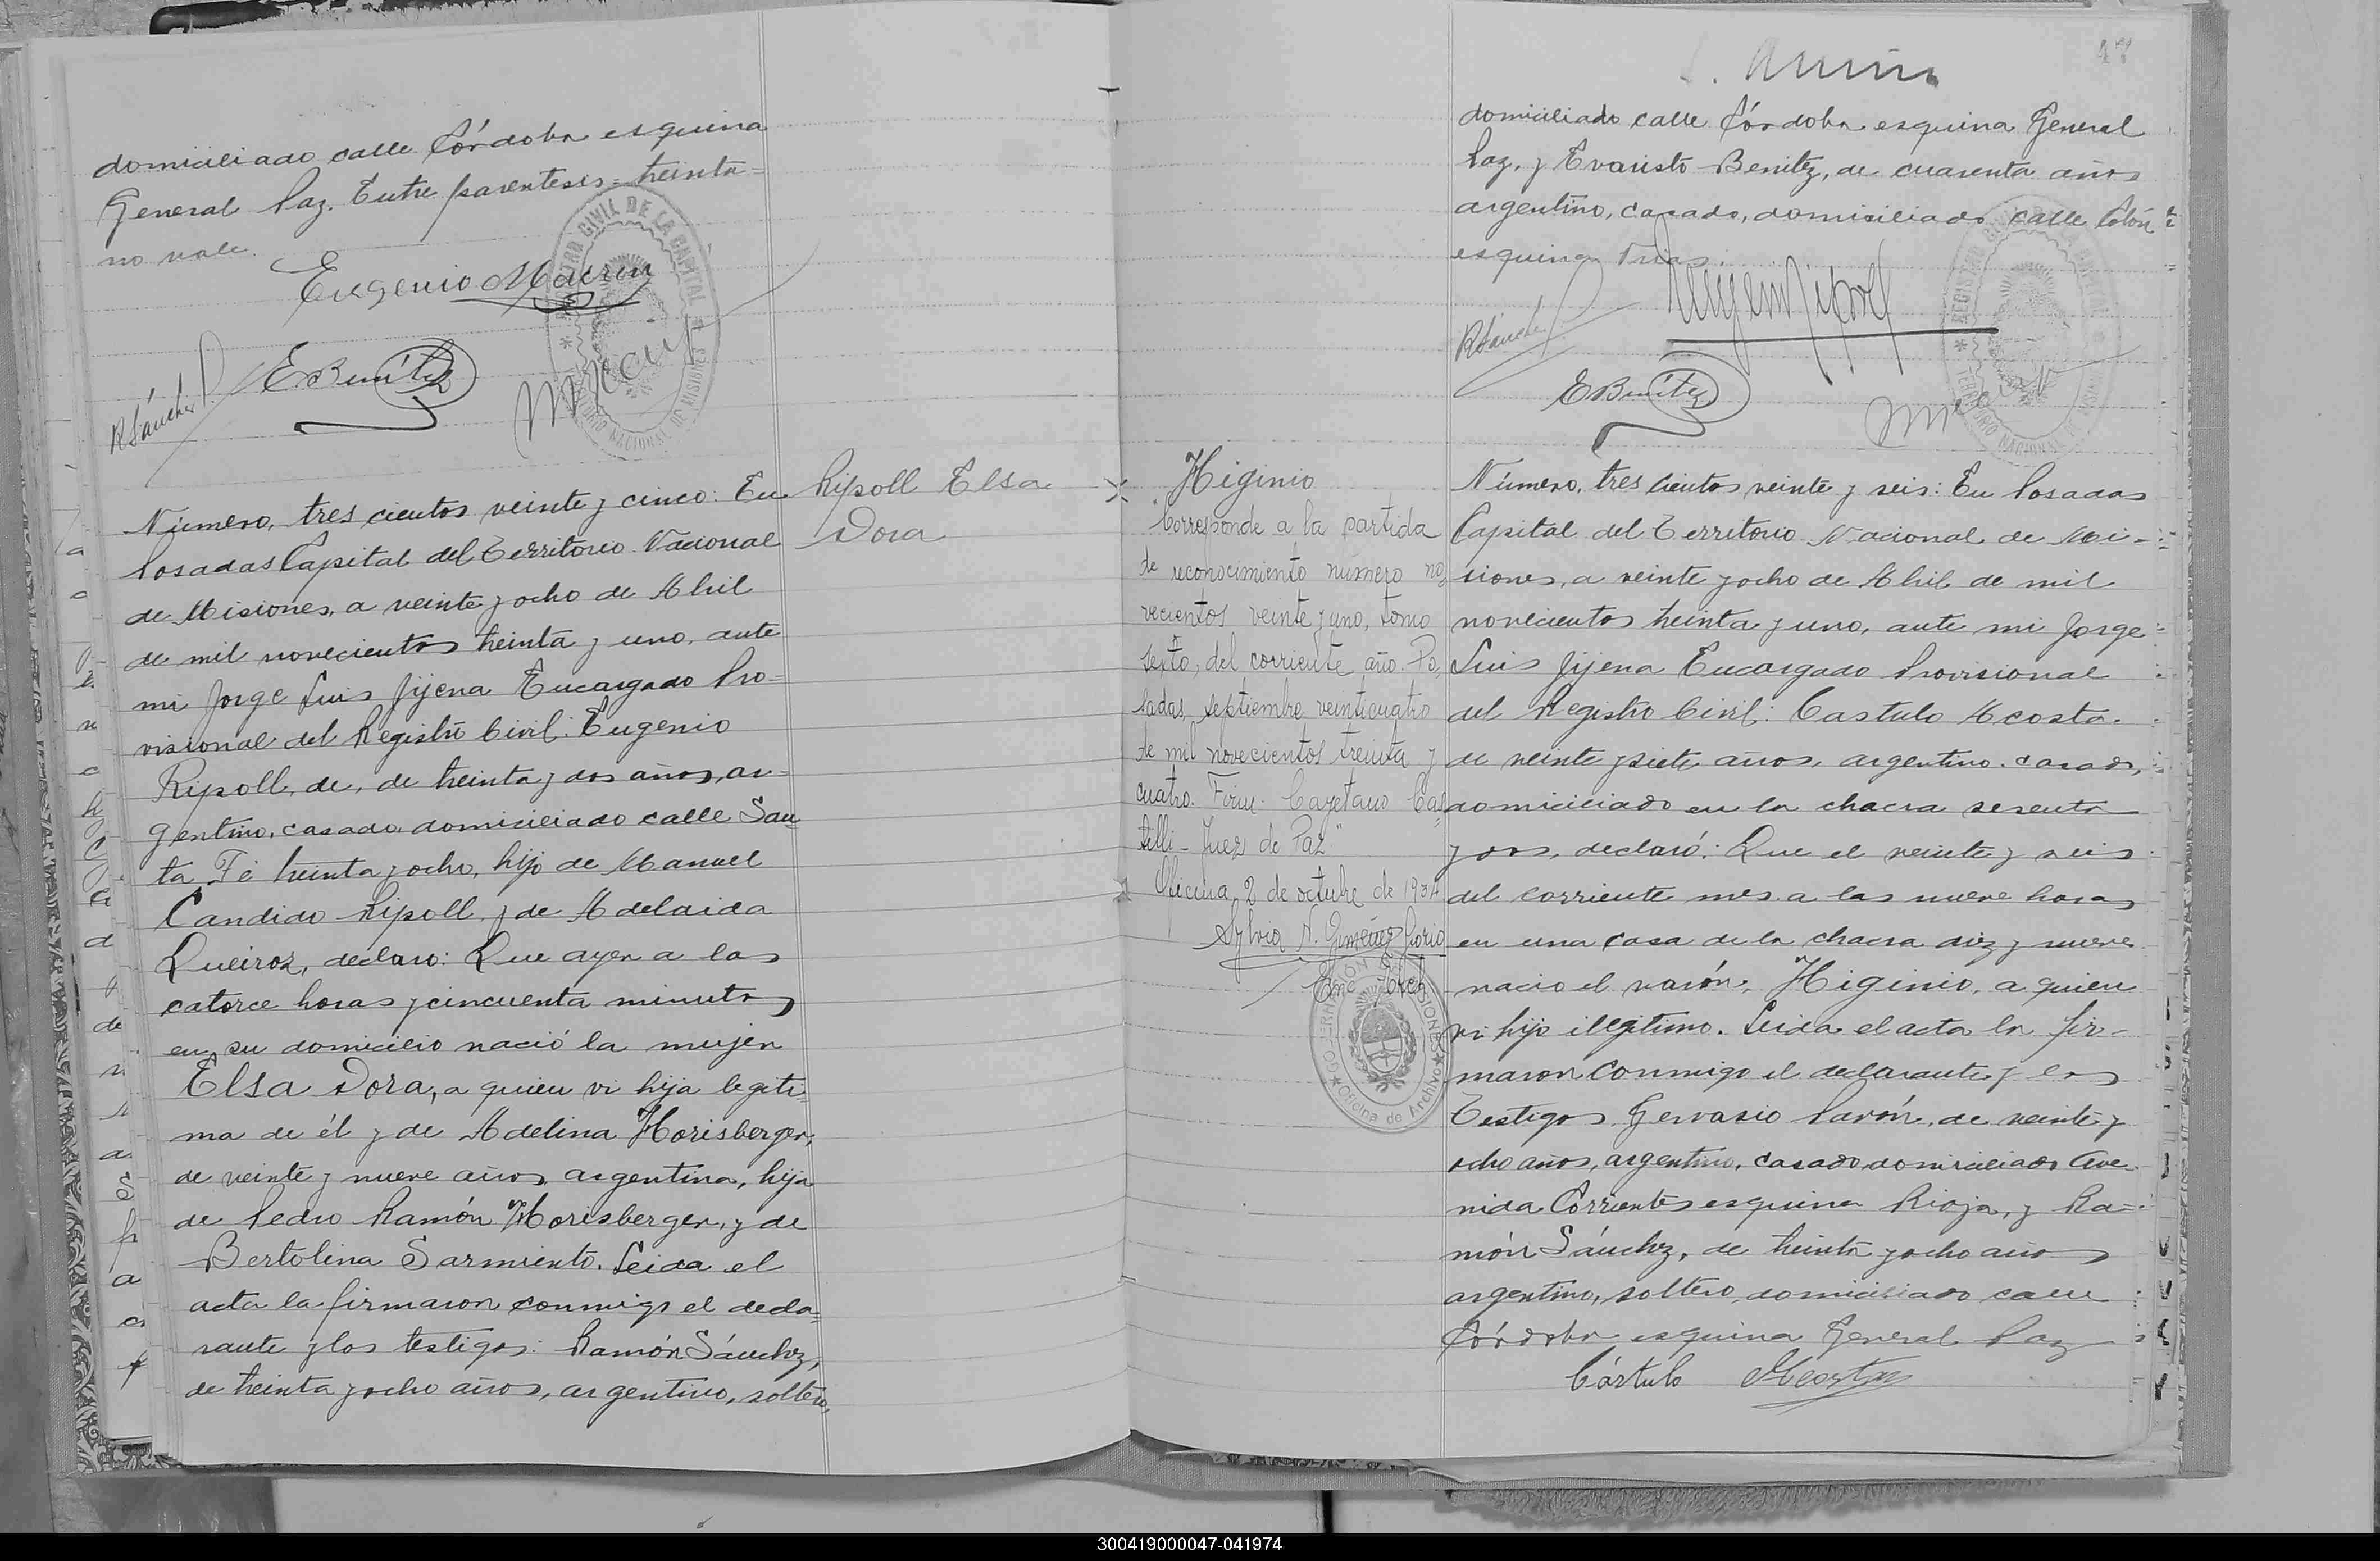 domiciliado calle Córdoba esquina
General Paz. Entre parentesis = treinta =
no vale.
Eugenio
REGISTRO CIVIL DE LA CAPITAL
TERRITORIO NACIONAL DE MISIONES
RSánchez
EBenítez
Número, tres cientos veinte y cinco: En
Posadas Capital del Territorio Nacional
de Misiones, a veinte y ocho de Abril
de mil novecientos treinta y uno, ante
mi Jorge Luis Jijena Encargado Pro-
visional del Registro Civil: Eugenio
Ripoll, de, de treinta y dos años, ar-
gentino, casado, domiciliado calle San-
ta Fé treinta y ocho, hijo de Manuel
Candido Ripoll, y de Adelaida
Queiroz, declaro: Que ayer a las
catorce horas y cincuenta minutos
en su domicilio nació la mujer
Elsa Dora, a quien vi hija legiti-
ma de él y de Adelina Horisberger,
de veinte y nueve años, argentina, hija
de Pedro Ramón Horisberger, y de
Bertolina Sarmiento. Leida el
acta la firmaron conmigo el decla-
rante y los testigos: Ramón Sánchez,
de treinta y ocho años, argentino, soltero,
Ripoll Elsa
Dora
47
domiciliado calle Córdoba esquina General
Paz, y Evaristo Benitez, de cuarenta años
argentino, casado, domiciliado calle Colón
esquina Trias.
RSánchez
EBenítez
REGISTRO CIVIL DE LA CAPITAL
TERRITORIO NACIONAL DE MISIONES
Higinio
"Corresponde a la partida
de reconocimiento número no,
vecientos veinte y uno, tomo
sexto, del corriente año. Po,
sadas, septiembre veinticuatro
de mil novecientos treinta y
cuatro. Firm. Cayetano Cas,
telli - Juez de Paz"
Oficina 2 de octubre de 1934
Sylvia N. Gimenez
Enc. Arch
GOBERNACIÓN DE MISIONES
Oficina de Archivo
Número, tres cientos veinte y seis: En Posadas
Capital del Territorio Nacional de Mi-
siones, a veinte y ocho de Abril de mil
novecientos treinta y uno, ante mi Jorge
Luis Jijena Encargado Provisional
del Registro Civil: Castulo Acosta.
de veinte y siete años, argentino, casado,
domiciliado en la chacra sesenta
y dos, declaró: Que el veinte y seis
del corriente mes a las nueve horas
en una casa de la chacra diez y nueve
nacio el varón, Higinio, a quien
vi hijo illegitimo. Leida el acta la fir-
maron conmigo el declarante y los
Testigos Gervasio Pavón, de veinte y
ocho años, argentino, casado, domiciliado Ave-
nida Corrientes esquina Rioja, y Ra-
món Sánchez, de treinta y ocho años
argentino, soltero, domiciliado calle
Córdoba esquina General Paz
Cástulo Acosta
300419000047-041974